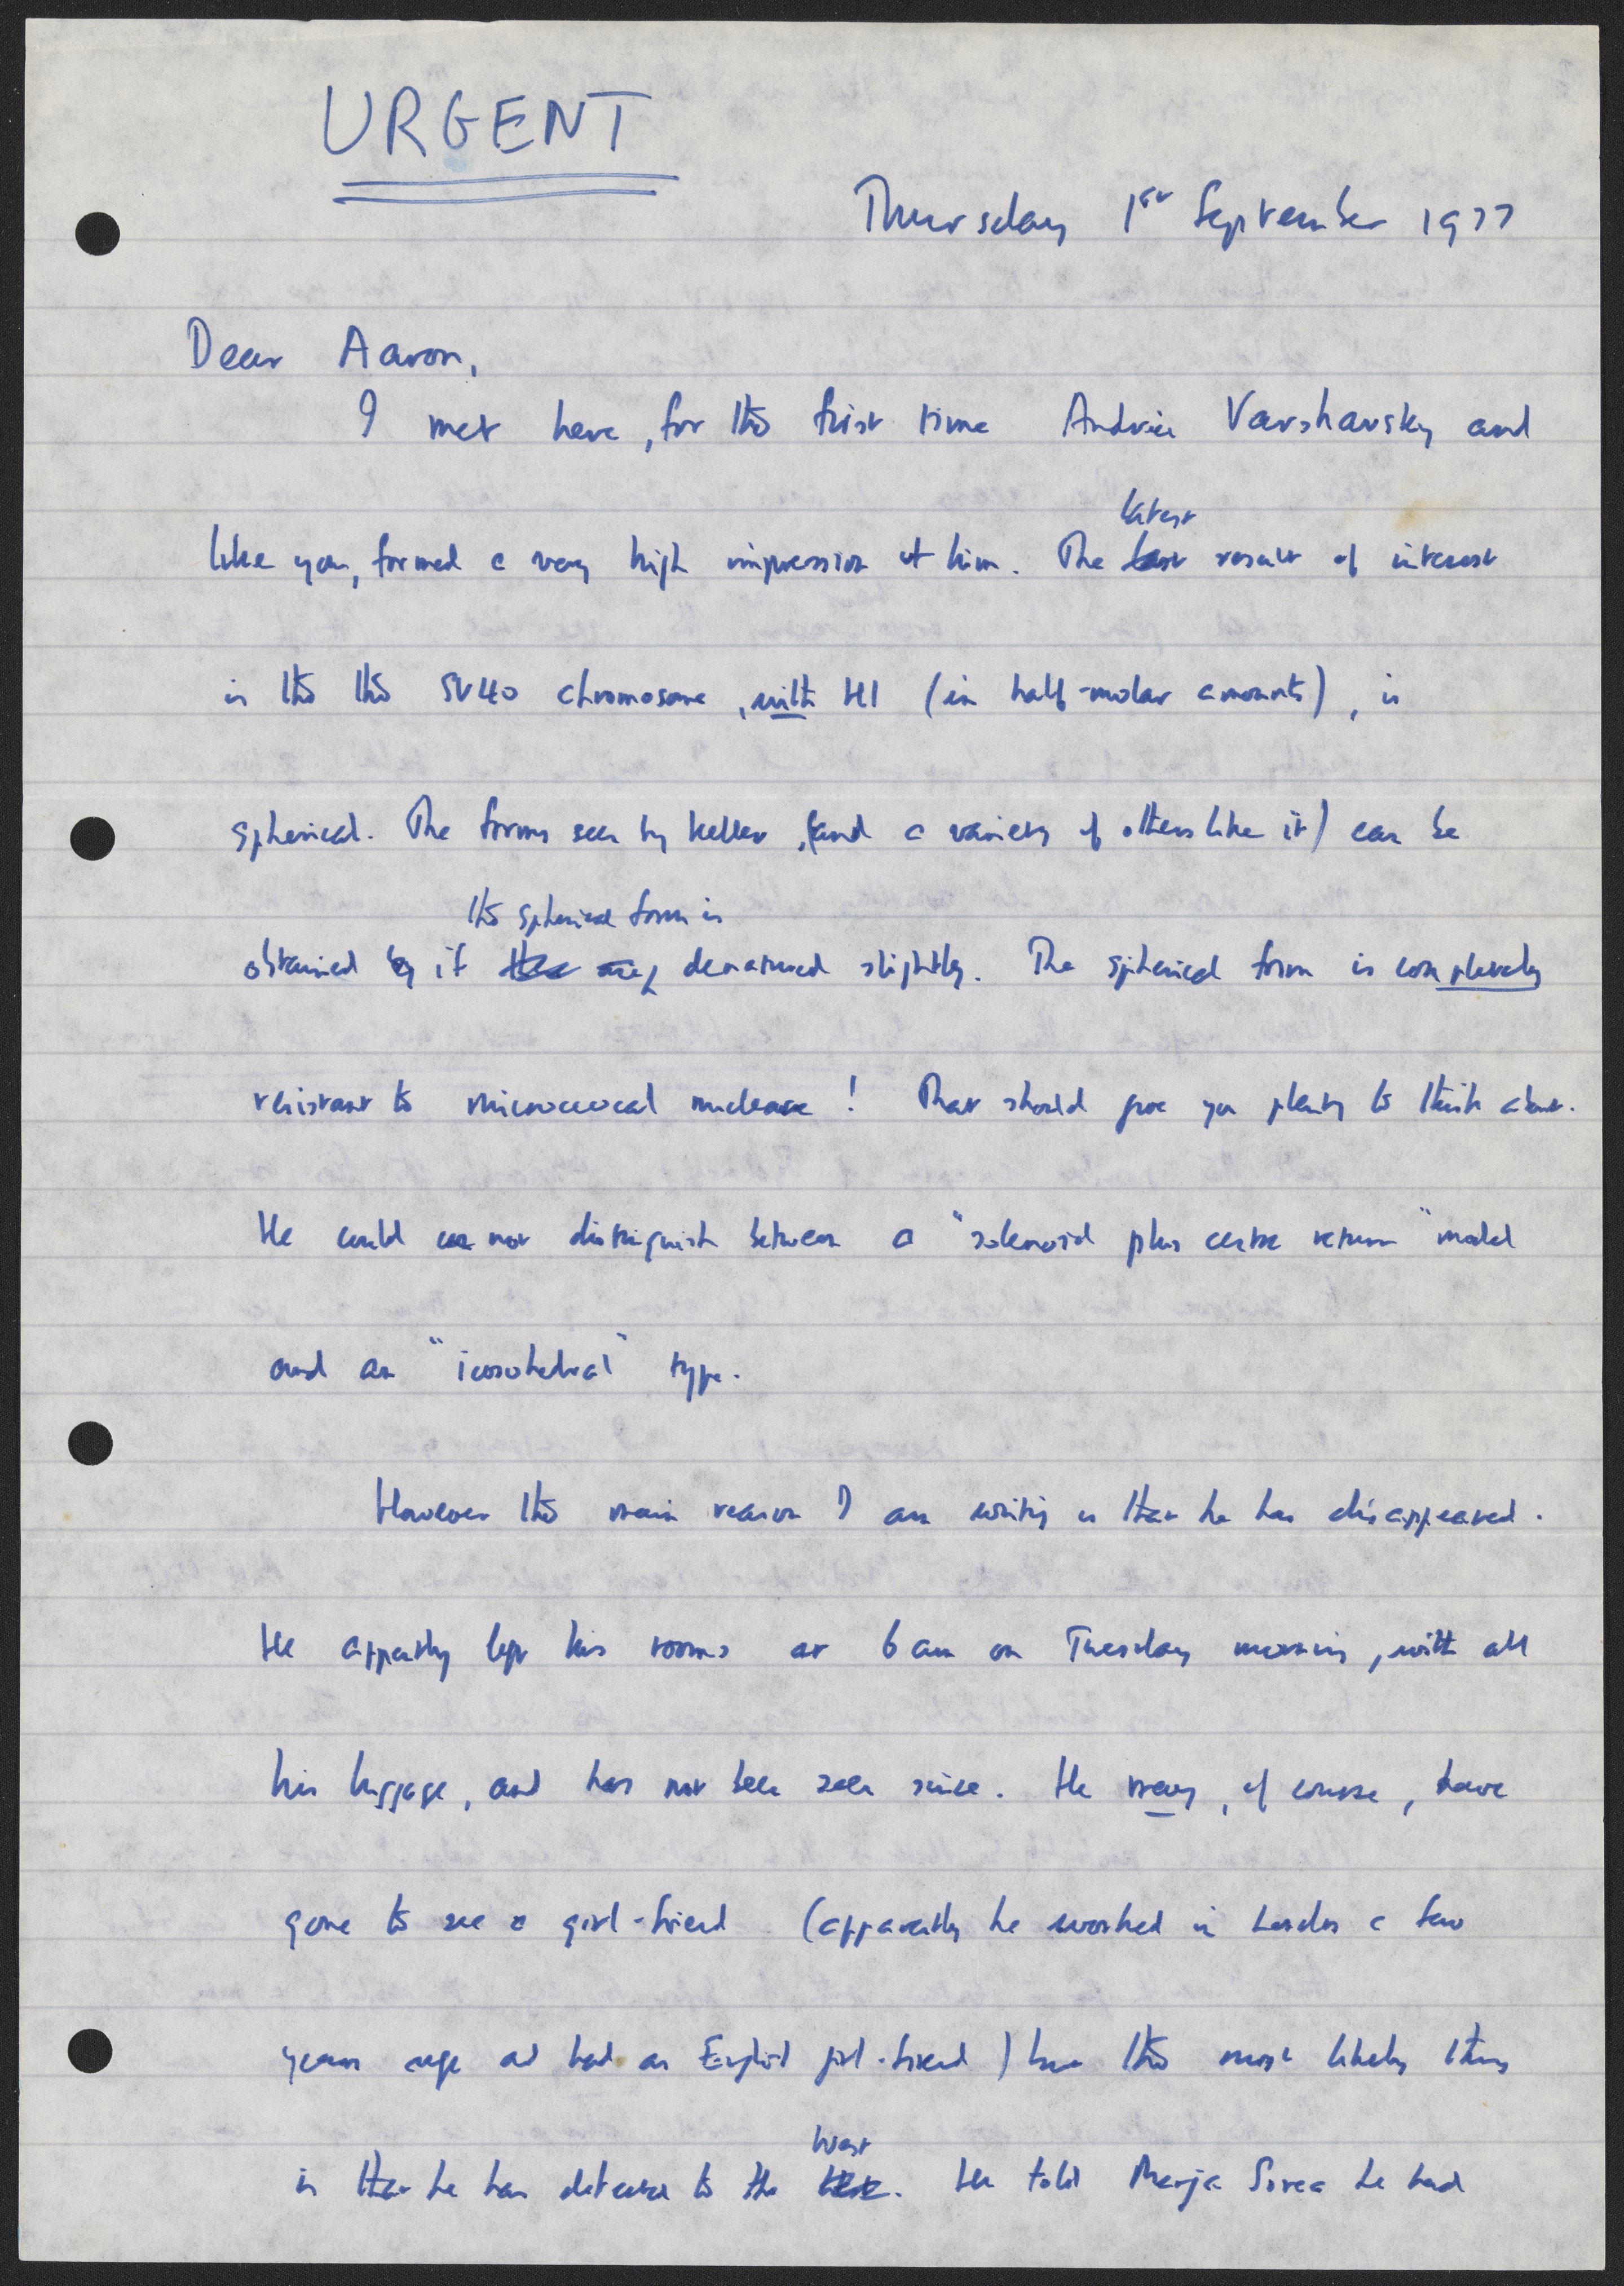 URGENT
Thursday 1st September 1977
Dear Aaron,
I met here, for the first time Andrei Varshavsky and
latest
like you, formed a very high impression of him. The last result of interest
is the the SV40 chromosome, with H1 (in half-molar amounts), is
spherical. The forms seen by Keller, (and a variety of others like it) can be
the spherical form is
obtained by if they are denatured slightly. The spherical form is completely
resistant to micrococcal nuclease! That should give you plenty to think about.
He could can not distinguish between a "solenoid plus centre return" model
and an "icosohedral" type.
However the main reason I am writing is that he has disappeared.
He apparently left his rooms at 6 am on Tuesday morning, with all
his luggage, and has not been seen since. He may, of course, have
gone to see a girl-friend (apparently he worked in London a few
years ago and had an English girl-friend) but the most likely thing
West
is that he has defected to the. He told Marja Sorsa he had